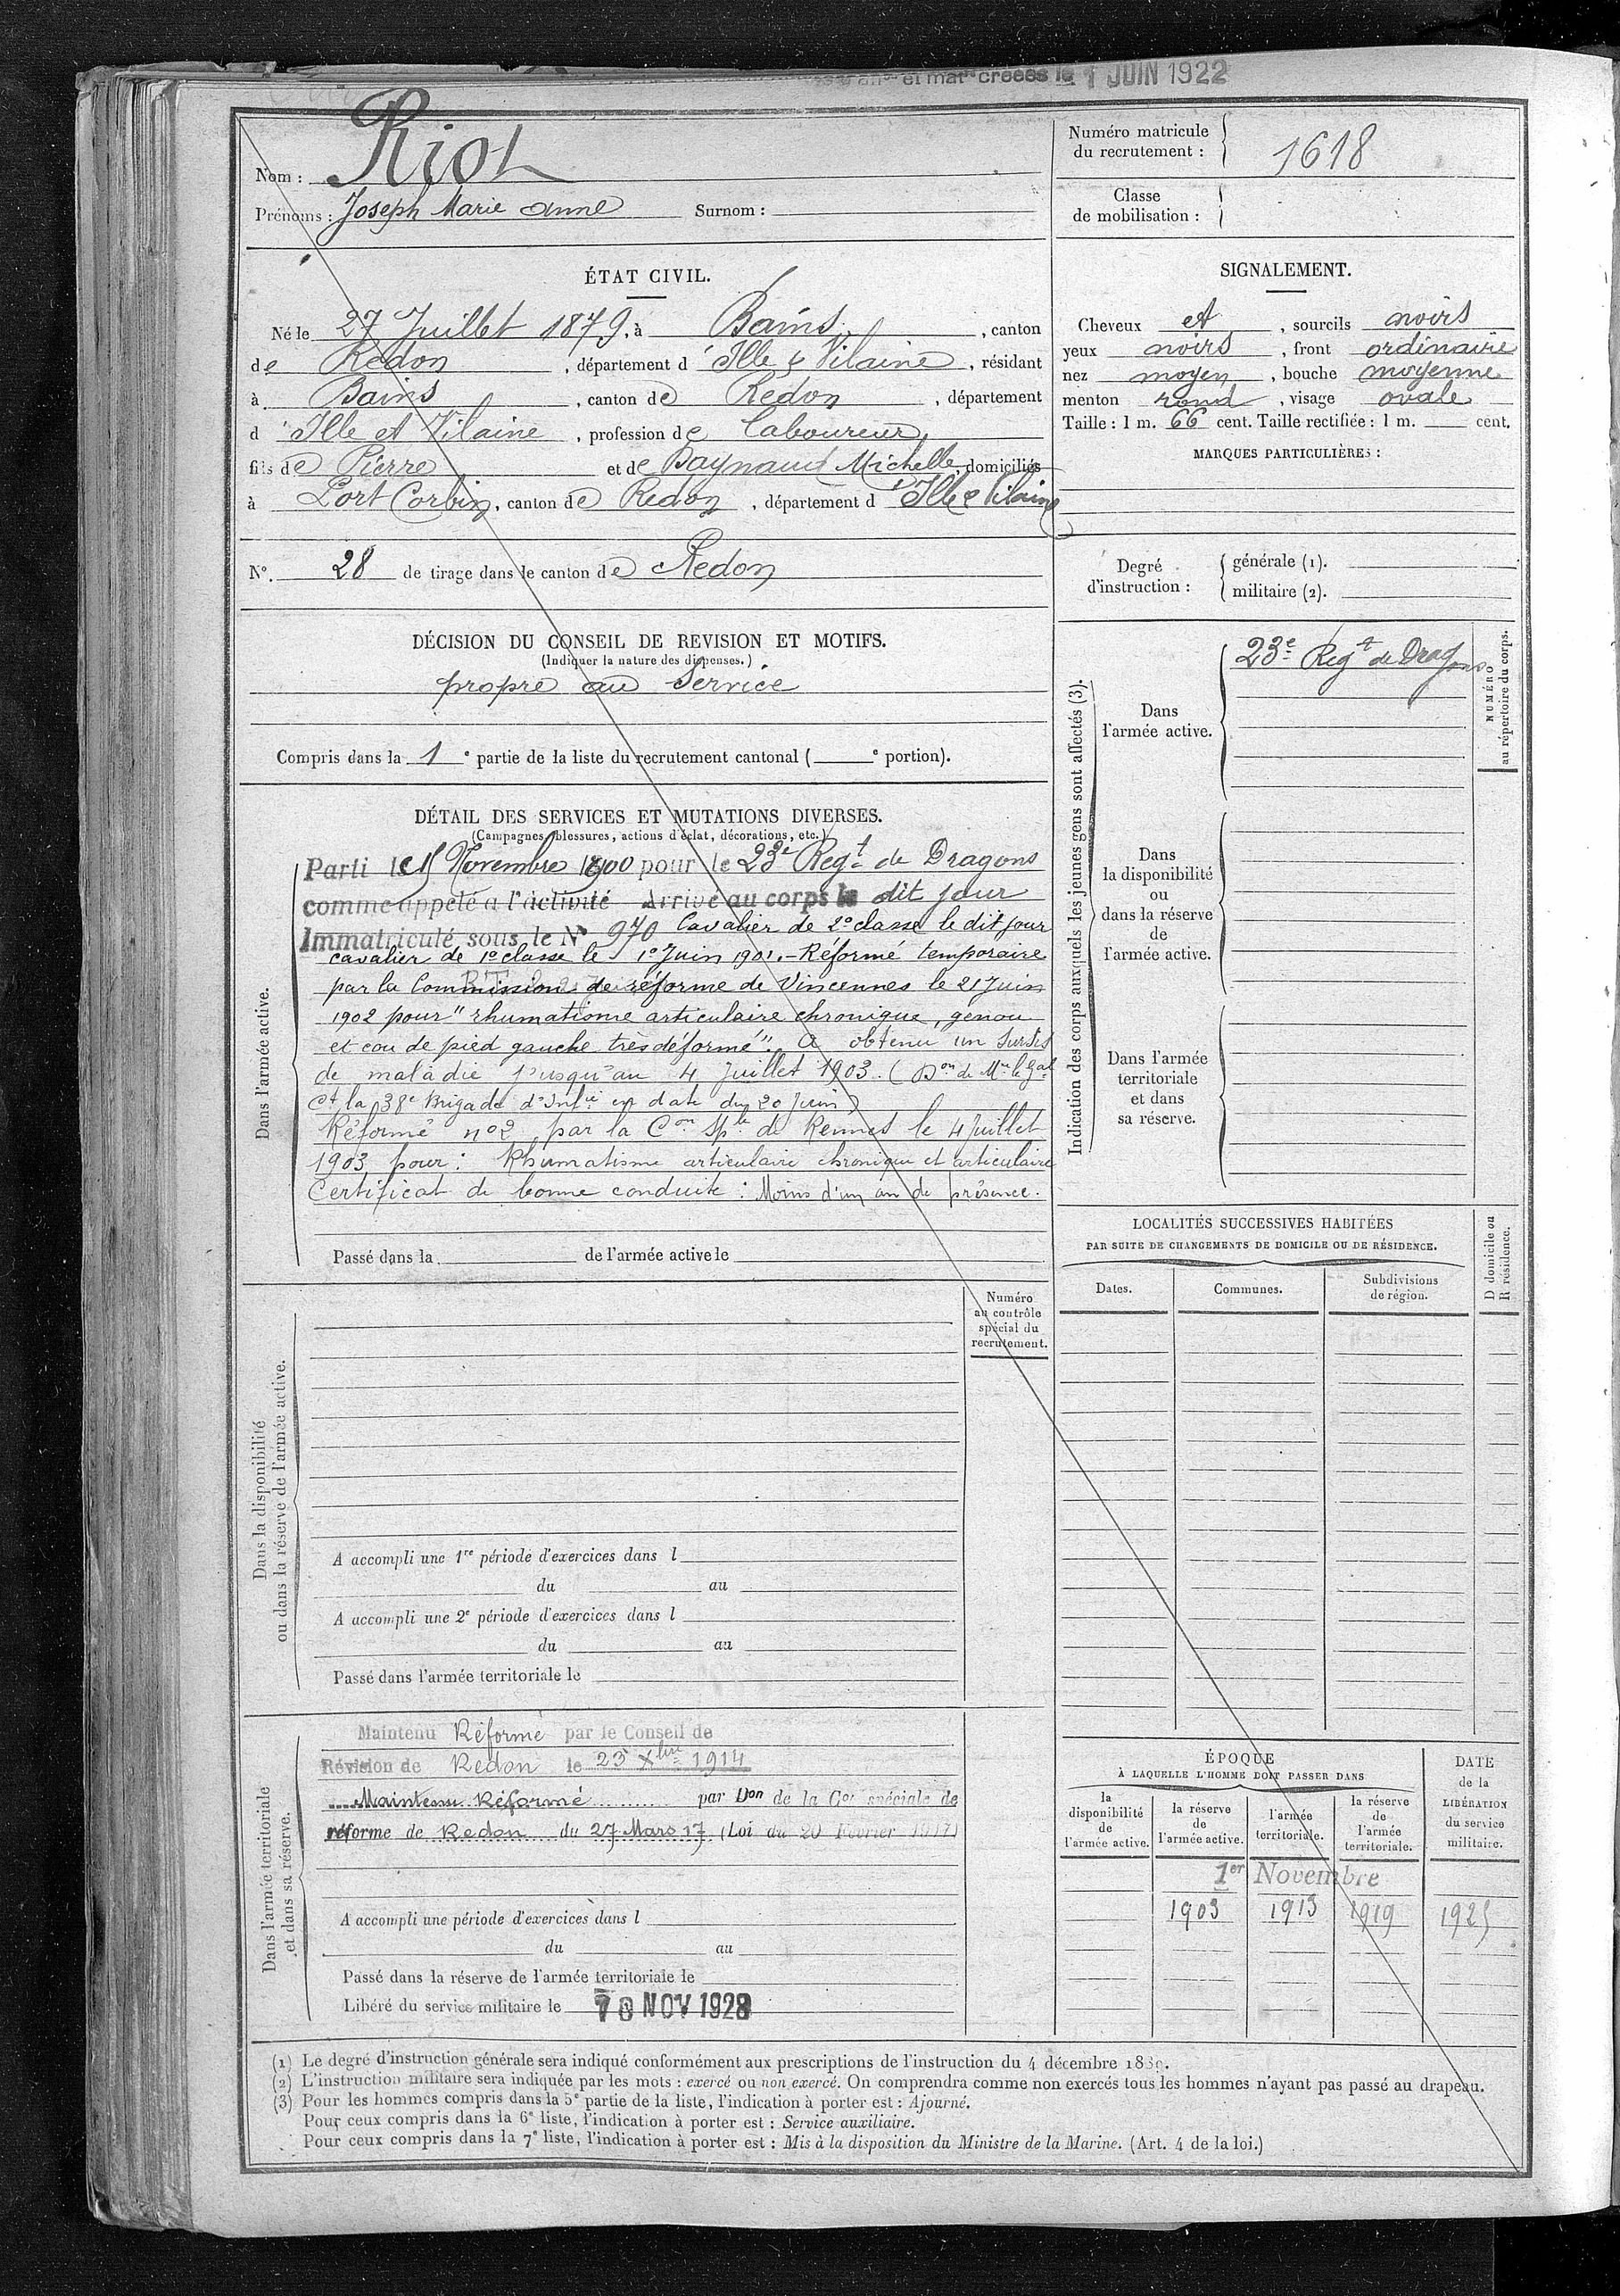 et mat creées le 1 JUIN 1922
Nom : Riot
Prénoms : Joseph Marie Anne Surnom :
Numéro matricule du recrutement : 1618
Classe de mobilisation :
ÉTAT CIVIL.
Né le 27 Juillet 1879, à Bains, canton
de Redon, département d'Ille & Vilaine, résidant
à Bains, canton de Redon, département
d'Ille et Vilaine, profession de laboureur,
fils de Pierre et de Daynaud Michelle, domiciliés
à Port Corbin, canton de Redon, département d'Ille & Vilaine
N°. 28 de tirage dans le canton de Redon
SIGNALEMENT.
Cheveux et, sourcils noirs
yeux noirs, front ordinaire
nez moyen, bouche moyenne
menton rond, visage ovale
Taille : 1 m. 66 cent. Taille rectifiée : 1 m. cent.
MARQUES PARTICULIÈRES :
Degré d'instruction : générale (1).
militaire (2).
DÉCISION DU CONSEIL DE REVISION ET MOTIFS.
(Indiquer la nature des dispenses.)
propre au Service
Compris dans la 1e partie de la liste du recrutement cantonal ( e portion).
DÉTAIL DES SERVICES ET MUTATIONS DIVERSES.
(Campagnes, blessures, actions d'éclat, décorations, etc.)
Dans l'armée active.
Parti le 15 Novembre 1900 pour le 23e Regt de Dragons
comme appelé à l'activité Arrivé au corps le dit jour
Immatriculé sous le N° 970 Cavalier de 2e classe le dit jour
cavalier de 1e classe le 1e Juin 1901.- Réformé temporaire
par la Commission de réforme de Vincennes le 21 Juin
1902 pour "rhumatisme articulaire chronique, genou
et cou de pied gauche très déformé". A obtenu un sursis
de maladie jusqu'au 4 Juillet 1903. (Don de Mr le Gal
Ct la 38e Brigade d'Infie en date du 20 Juin)
Réformé n°2 par la Con Sple de Rennes le 4 Juillet
1903 pour : Rhumatisme articulaire chronique et articulaire
Certificat de bonne conduite : Moins d'un an de présence.
Passé dans la de l'armée active le
Indication des corps auxquels les jeunes gens sont affectés (3).
Dans l'armée active.
23e Regt de Dragons
NUMÉRO au répertoire du corps.
Dans la disponibilité ou dans la réserve de l'armée active.
Dans l'armée territoriale et dans sa réserve.
LOCALITÉS SUCCESSIVES HABITÉES
PAR SUITE DE CHANGEMENTS DE DOMICILE OU DE RÉSIDENCE.
Dates. Communes. Subdivisions de région.
D domicile ou R résidence.
Dans la disponibilité ou dans la réserve de l'armée active.
Numéro au contrôle spécial du recrutement.
A accompli une 1re période d'exercices dans l
du au
A accompli une 2e période d'exercices dans l
du au
Passé dans l'armée territoriale le
Dans l'armée territoriale et dans sa réserve.
Maintenu Réformé par le Conseil de
Révision de Redon le 23 Xbre 1914
Maintenu Réformé par Don de la Con spéciale de
réforme de Redon du 27 Mars 17 (Loi du 20 Février 1917)
A accompli une période d'exercices dans l
du au
Passé dans la réserve de l'armée territoriale le
Libéré du service militaire le 10 NOV 1928
ÉPOQUE
À LAQUELLE L'HOMME DOIT PASSER DANS
la disponibilité de l'armée active.
la réserve de l'armée active.
l'armée territoriale.
la réserve de l'armée territoriale.
DATE de la LIBÉRATION du service militaire.
1er Novembre
1903 1913 1919 1925
(1) Le degré d'instruction générale sera indiqué conformément aux prescriptions de l'instruction du 4 décembre 1889.
(2) L'instruction militaire sera indiquée par les mots : exercé ou non exercé. On comprendra comme non exercés tous les hommes n'ayant pas passé au drapeau.
(3) Pour les hommes compris dans la 5e partie de la liste, l'indication à porter est : Ajourné.
Pour ceux compris dans la 6e liste, l'indication à porter est : Service auxiliaire.
Pour ceux compris dans la 7e liste, l'indication à porter est : Mis à la disposition du Ministre de la Marine. (Art. 4 de la loi.)